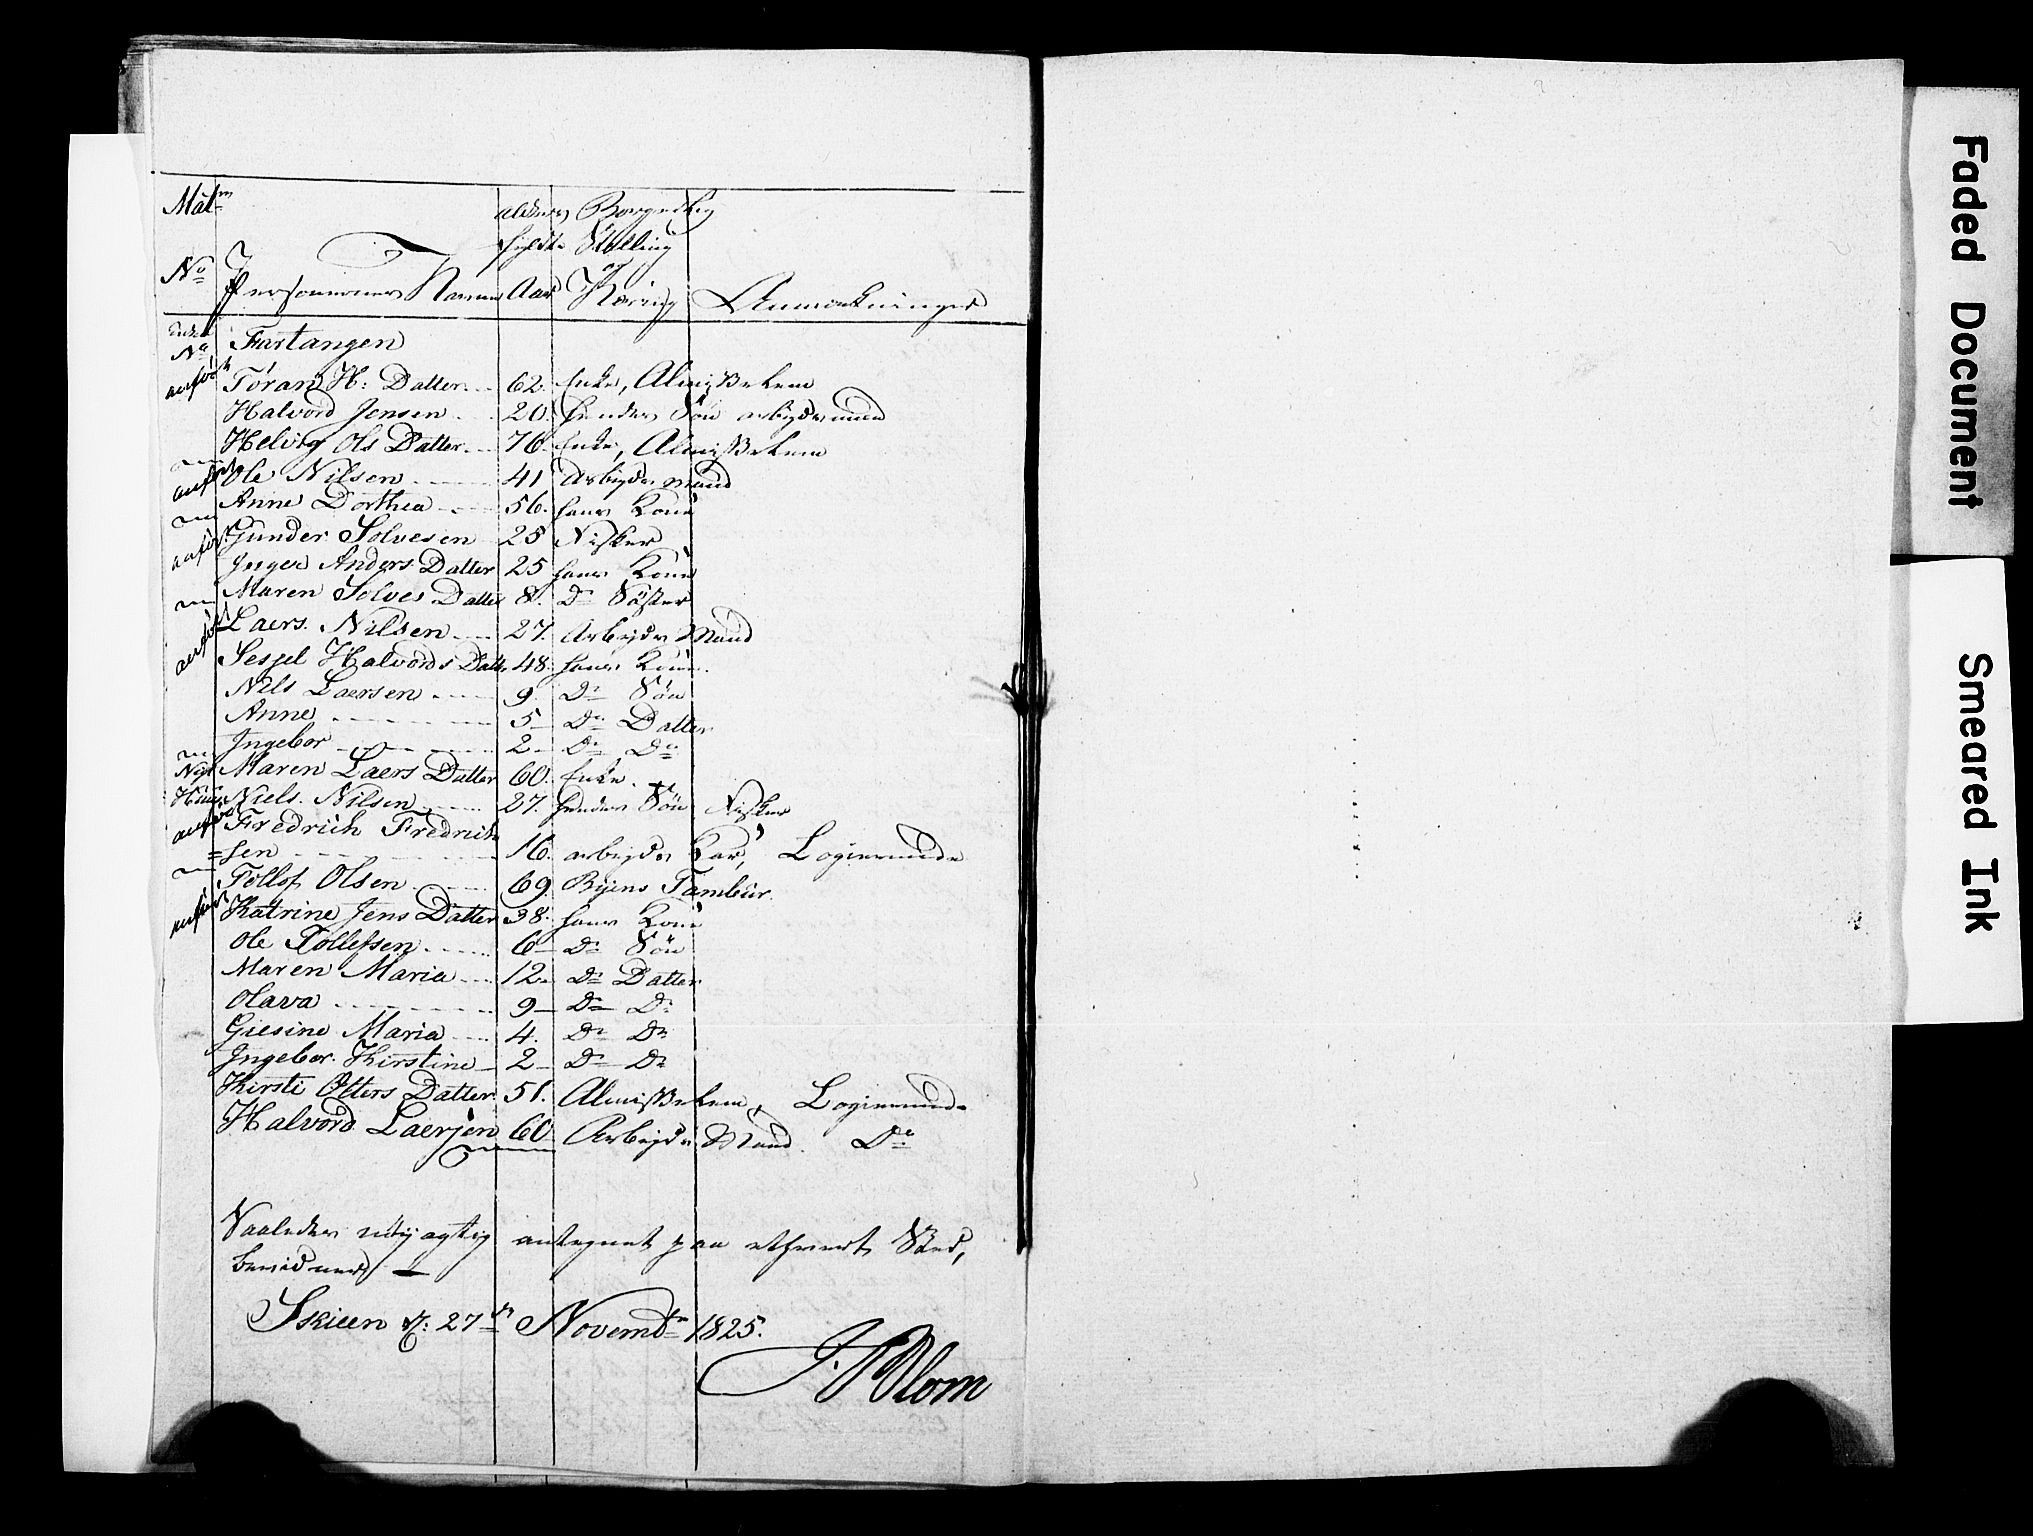 Mat:
No
Personernes Navne
alders fyldte Aar
Borgerlig Stilling og Næring
Anmærkninger
uden No Fartangen
anført Toran H: Datter 62. Enke, Almisselem
Halvord Jensen 20. hendes Søn arbejdsmand
Helvig Ols Datter 76. Enke, Almisselem
anført Ole Nilsen 41 Arbejdsmand
Anne Dorthea 56. hans Kone
anført Gunder Solvesen 25 Fisker
Inger Anders Datter 25 hans Kone
Maren Solves Datter 8. Do Søster
anført Laers Nilsen 27. Arbejds Mand
Sesjel Halvords Datt 48. hans Kone
Nils Laersen 9. Do Søn
Anne 5 Do Datter
Ingebor 2 Do Do
Maren Laers Datter 60. Enke.
Niels Nilsen 27. hendes Søn Fisker
anført Fredrich Fredrich
=sen 16. arbejds Kar, Logierende
Tollof Olsen 69 Byens Tambur.
anført Katrine Jens Datter 38. hans Kone
Ole Tollefsen 6 Do Søn
Maren Maria 12. Do Datter
Olava 9 Do Do
Giesine Maria 4. Do Do
Ingebor Kirstine 2 Do Do
Kirsti Otters Datter 51. Almisselem, Logierende
Halvord Laersen 60 Arbejds Mand. Do
Saaledes nøjagtig antegnet paa ethvert Sted,
bevidnes
Skien d: 27de Novembr 1825.
J. Blom
Faded Document
Smeared Ink